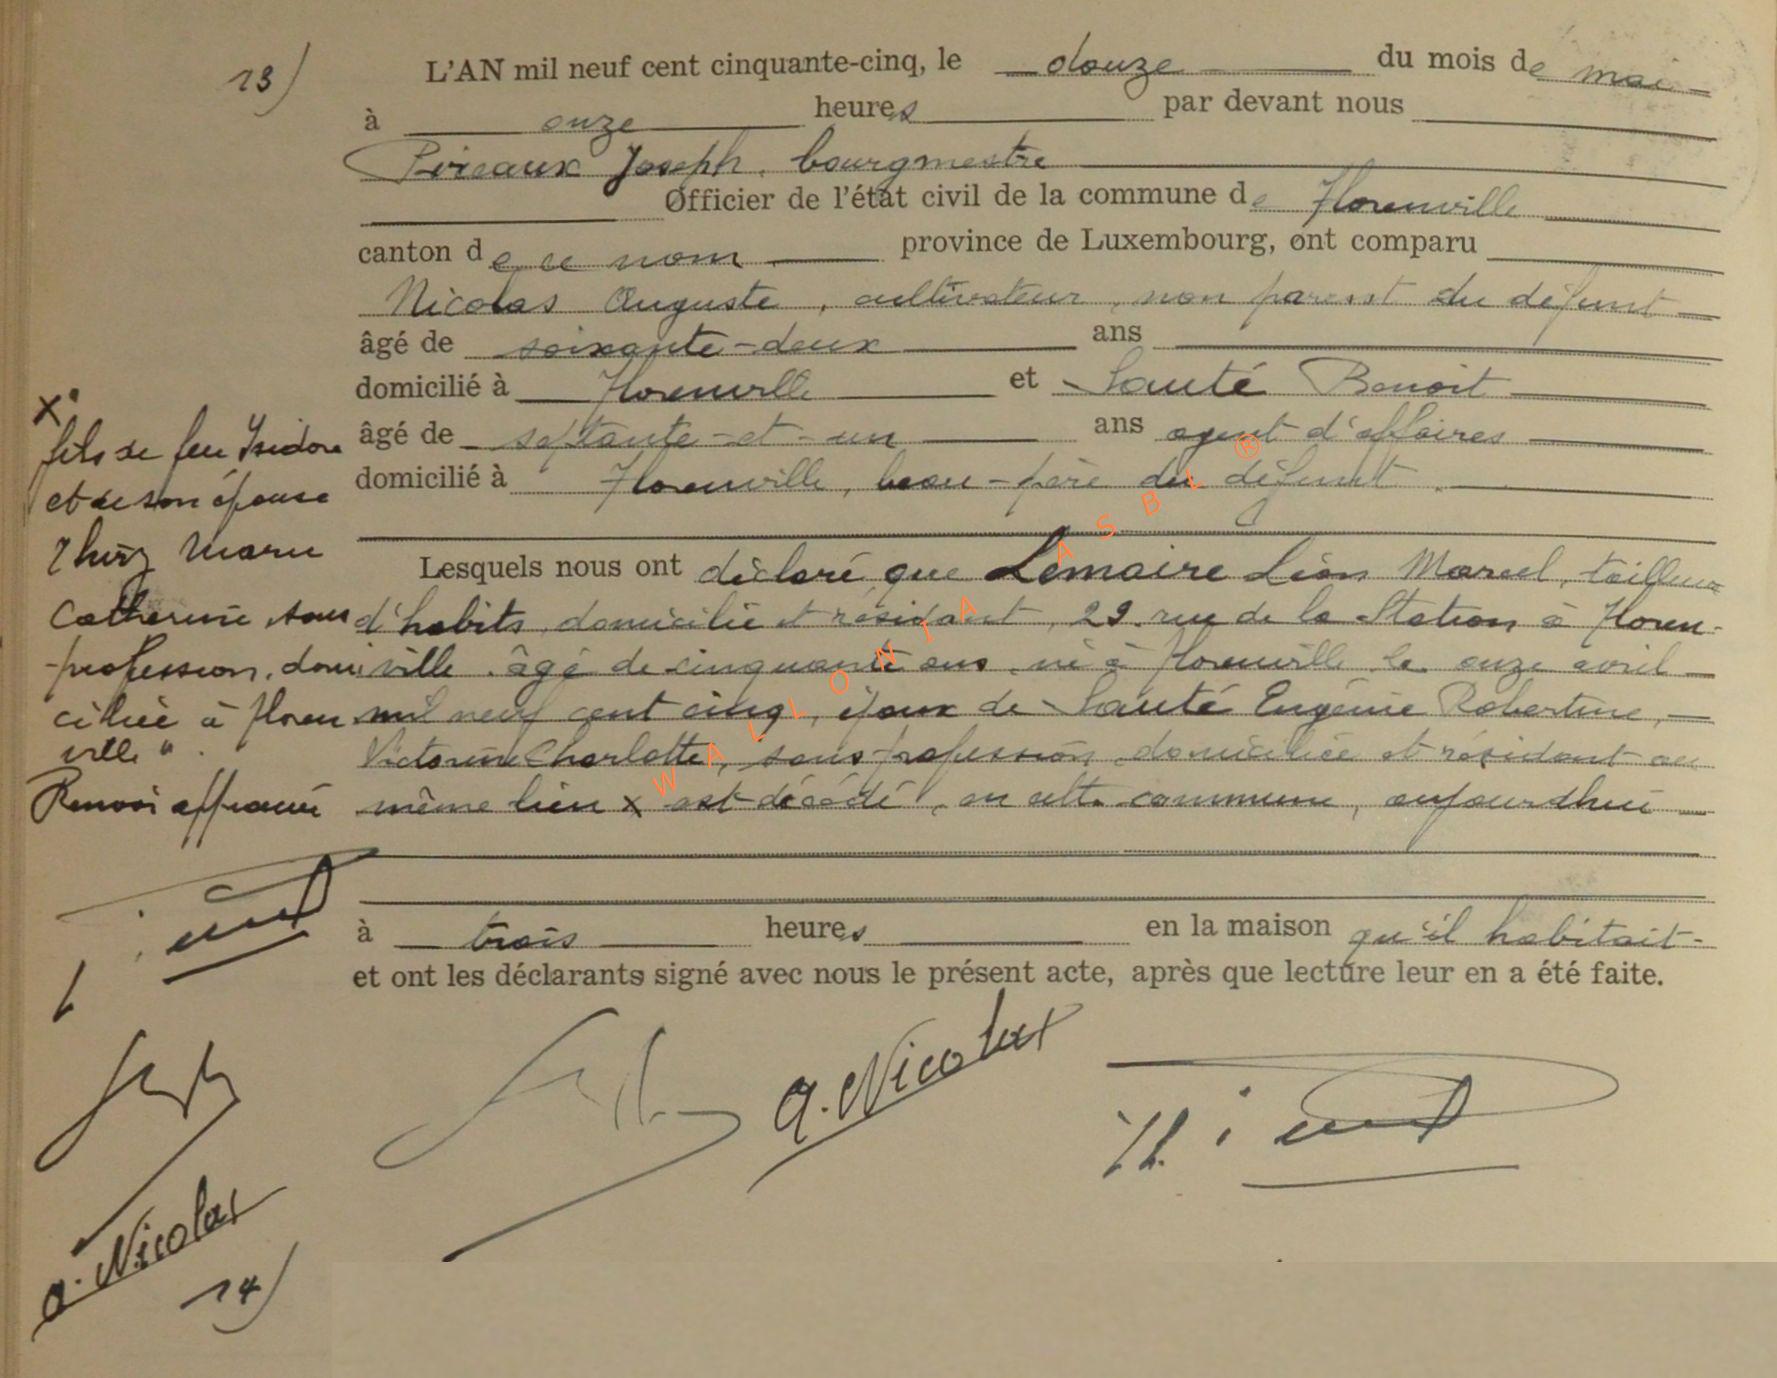 13)
L'AN mil neuf cent cinquante-cinq, le douze du mois de mai
à onze heures par devant nous
Pireaux Joseph, bourgmestre
Officier de l'état civil de la commune de Florenville
canton de ce nom province de Luxembourg, ont comparu
Nicolas Auguste, cultivateur, non parent du défunt
âgé de soixante-deux ans
domicilié à Florenville et Santé Benoit
âgé de septante-et-un ans agent d'affaires
domicilié à Florenville, beau-père du défunt.
Lesquels nous ont déclaré que Lemaire Léon Marcel, tailleur
d'habits, domicilié et résidant, 29 rue de la Station à Floren-
ville, âgé de cinquante ans, né à Florenville le onze avril
mil neuf cent cinq, époux de Santé Eugénie Robertine,
Victorine Charlotte, sans profession, domiciliée et résidant au
même lieu x est décédé, en cette commune, aujourdhui
à trois heures en la maison qu'il habitait
et ont les déclarants signé avec nous le présent acte, après que lecture leur en a été faite.
a. Nicolas
x
fils de feu Isidore
et de son épouse
Marie
Catherine, sans
profession, domi
ciliée à Floren
ville".
Renvoi approuvé
a. Nicolas
14)
WALLONIA ASBL ®